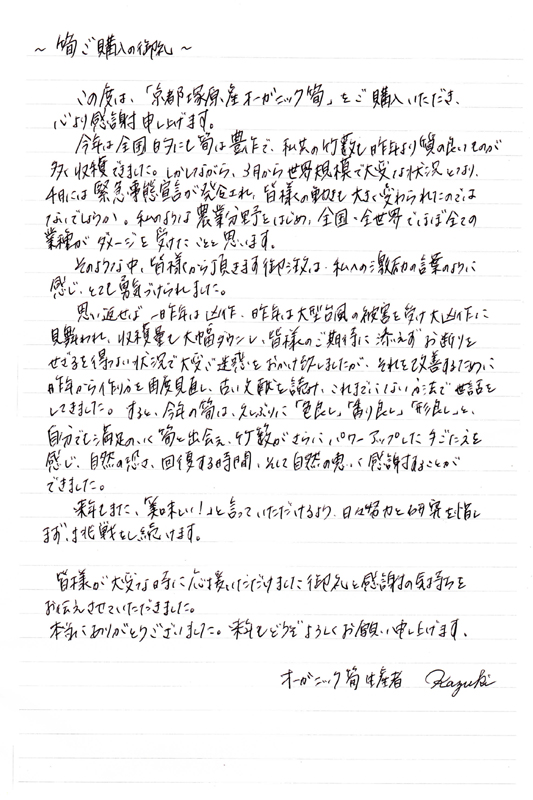 ～ 筍ご購入の御礼 ～
この度は、「京都塚原産オーガニック筍」をご購入いただき、
心より感謝申し上げます。
今年は全国的にも筍は豊作で、私共の竹藪も昨年より質の良いものが
多く収穫できました。しかしながら、3月から世界規模で大変な状況となり、
4月には緊急事態宣言が発令され、皆様の動きも大きく変わられたのでは
ないでしょうか。私のような農業分野をはじめ、全国・全世界でほぼ全ての
業種がダメージを受けたことと思います。
そのような中、皆様から頂きます御注文は、私への激励の言葉のように
感じ、とても勇気づけられました。
思い返せば一昨年は凶作、昨年は大型台風の被害を受け大凶作に
見舞われ、収穫量も大幅ダウンし、皆様のご期待に添えずお断りを
せざるを得ない状況で大変ご迷惑をおかけ致しましたが、それを改善するために
昨年から作り方を再度見直し、古い文献を読み、これまでにない方法で世話を
してきました。すると、今年の筍は、久しぶりに「色良し」「香り良し」「形良し」と、
自分でも満足のいく筍と出会え、竹藪がさらにパワーアップした手ごたえを
感じ、自然の恐さ、回復する時間、そして自然の恵みに感謝することが
できました。
来年もまた、「美味しい！」と言っていただけるよう、日々努力と研究を惜し
まず、挑戦をし続けます。
皆様が大変な時に応援いただけました御礼と感謝の気持ちを
お伝えさせていただきました。
本当にありがとうございました。来年もどうぞよろしくお願い申し上げます。
オーガニック筍生産者 Kazuki